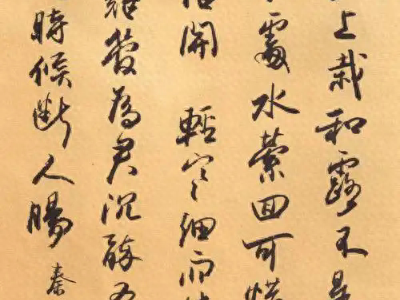 上栽和露不是
處水縈回可惜
開 輕寒細雨
管為君沉醉又
時候斷人腸 秦